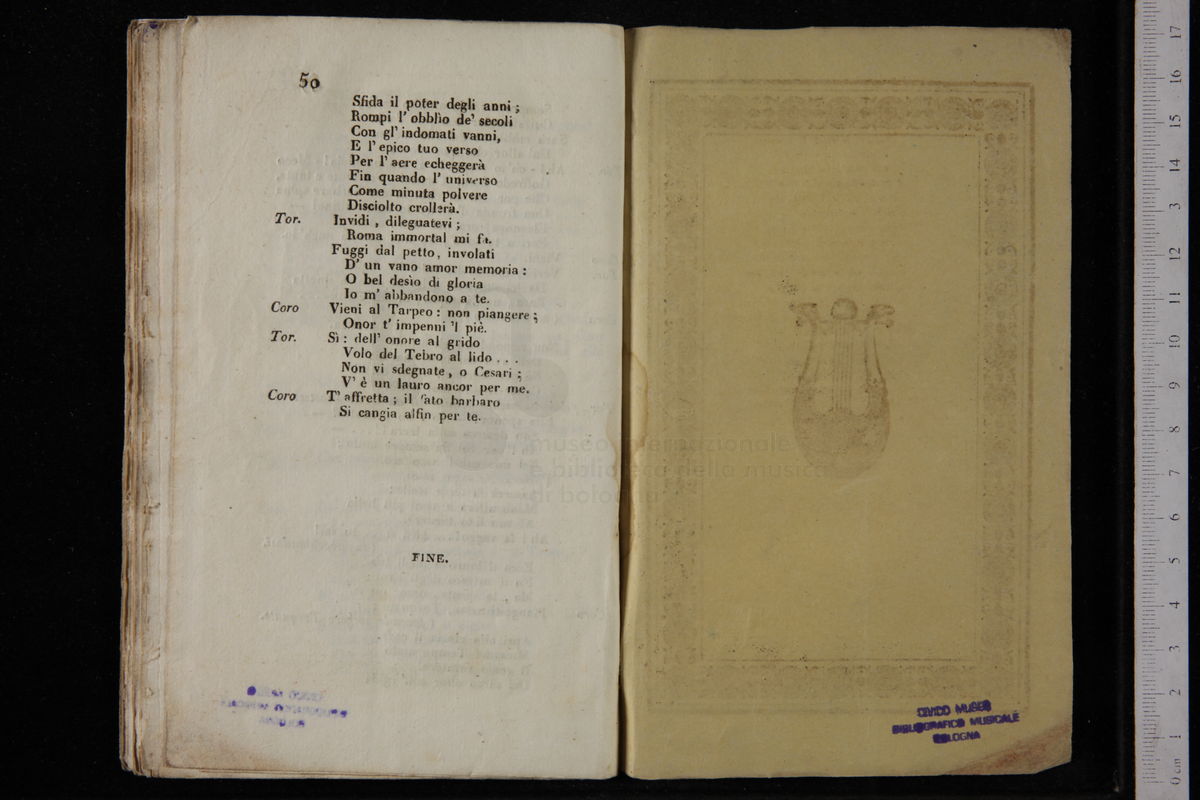 50
Sfida il poter degli anni ;
Rompi l' obblìo de' secoli
Con gl' indomati vanni,
E l' epico tuo verso
Per l' aere echeggerà
Fin quando l' universo
Come minuta polvere
Disciolto crollerà.
Tor. Invidi , dileguatevi ;
Roma immortal mi fa.
Fuggi dal petto, involati
D' un vano amor memoria :
O bel desìo di gloria
Io m' abbandono a te.
Coro Vieni al Tarpeo : non piangere ;
Onor t' impenni 'l piè.
Tor. Sì : dell' onore al grido
Volo del Tebro al lido . . .
Non vi sdegnate, o Cesari ;
V' è un lauro ancor per me.
Coro T' affretta ; il fato barbaro
Si cangia alfin per te.
FINE.
museo internazionale
e biblioteca della musica
di bologna
CIVICO MUSEO
BIBLIOGRAFICO MUSICALE
BOLOGNA
0 cm 1 2 3 4 5 6 7 8 9 10 11 12 13 14 15 16 17